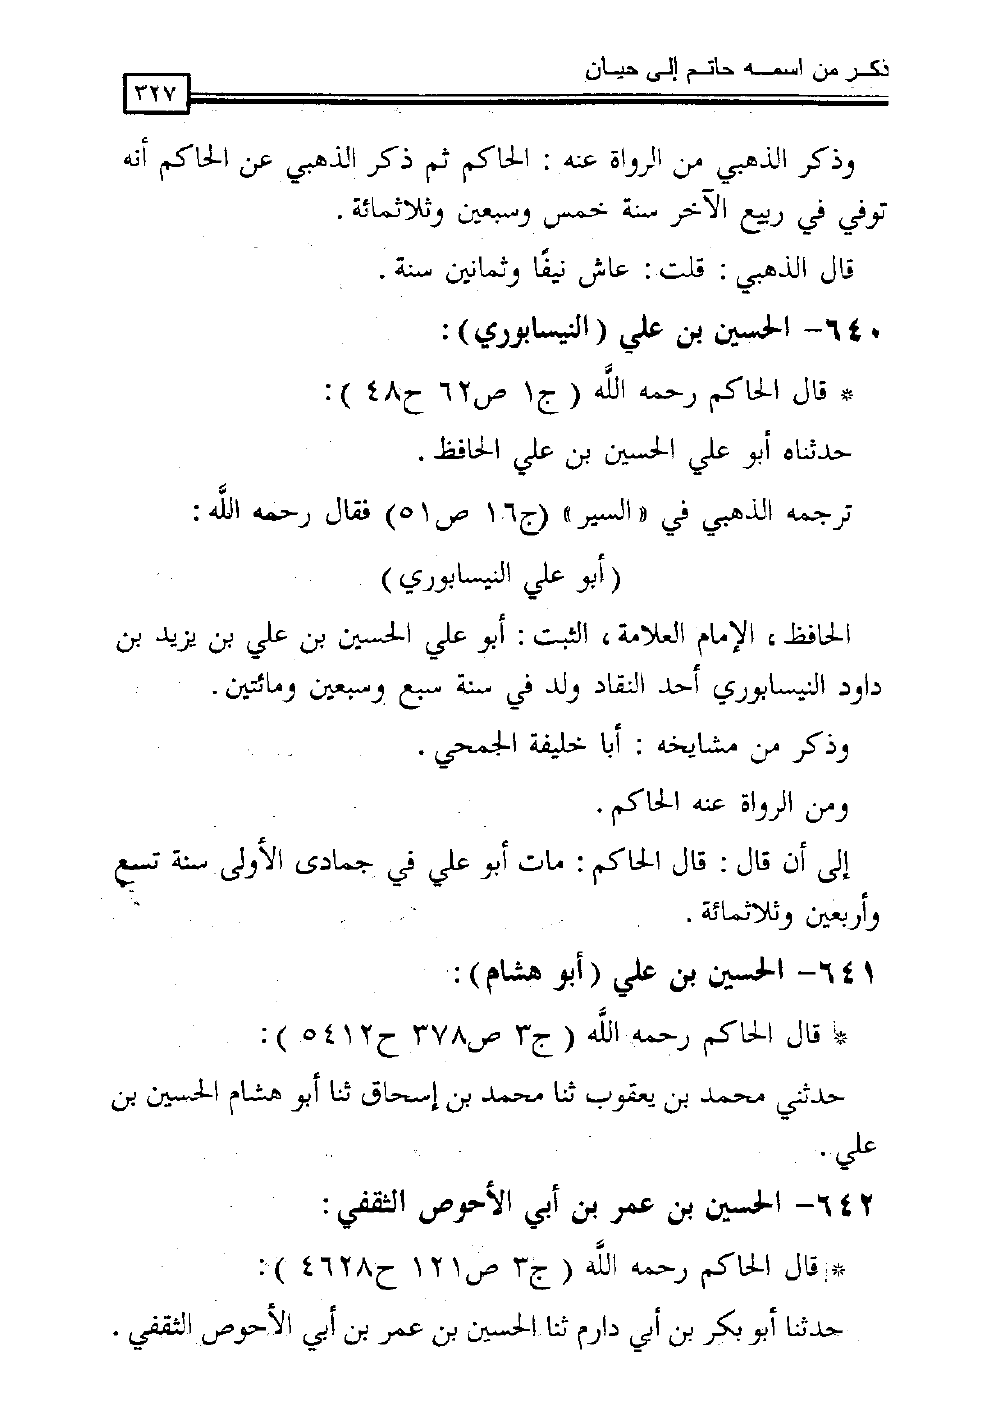 ذكر من اسمه حاتم إلى حيان
٣٢٧
وذكر الذهبي من الرواة عنه : الحاكم ثم ذكر الذهبي عن الحاكم أنه
توفي في ربيع الآخر سنة خمس وسبعين وثلاثمائة .
قال الذهبي : قلت : عاش نيفًا وثمانين سنة .
٦٤٠- الحسين بن علي (النيسابوري) :
* قال الحاكم رحمه اللَّه ( ج١ ص٦٢ ح٤٨ ) :
حدثناه أبو علي الحسين بن علي الحافظ .
ترجمه الذهبي في «السير» (ج١٦ ص٥١) فقال رحمه اللَّه :
(أبو علي النيسابوري)
الحافظ ، الإمام العلامة ، الثبت : أبو علي الحسين بن علي بن يزيد بن
داود النيسابوري أحد النقاد ولد في سنة سبع وسبعين ومائتين .
وذكر من مشايخه : أبا خليفة الجمحي .
ومن الرواة عنه الحاكم .
إلى أن قال : قال الحاكم : مات أبو علي في جمادى الأولى سنة تسع
وأربعين وثلاثمائة .
٦٤١- الحسين بن علي (أبو هشام) :
* قال الحاكم رحمه اللَّه ( ج٣ ص٣٧٨ ح٥٤١٢ ) :
حدثني محمد بن يعقوب ثنا محمد بن إسحاق ثنا أبو هشام الحسين بن
علي .
٦٤٢- الحسين بن عمر بن أبي الأحوص الثقفي :
* قال الحاكم رحمه اللَّه ( ج٣ ص١٢١ ح٤٦٢٨ ) :
حدثنا أبو بكر بن أبي دارم ثنا الحسين بن عمر بن أبي الأحوص الثقفي .